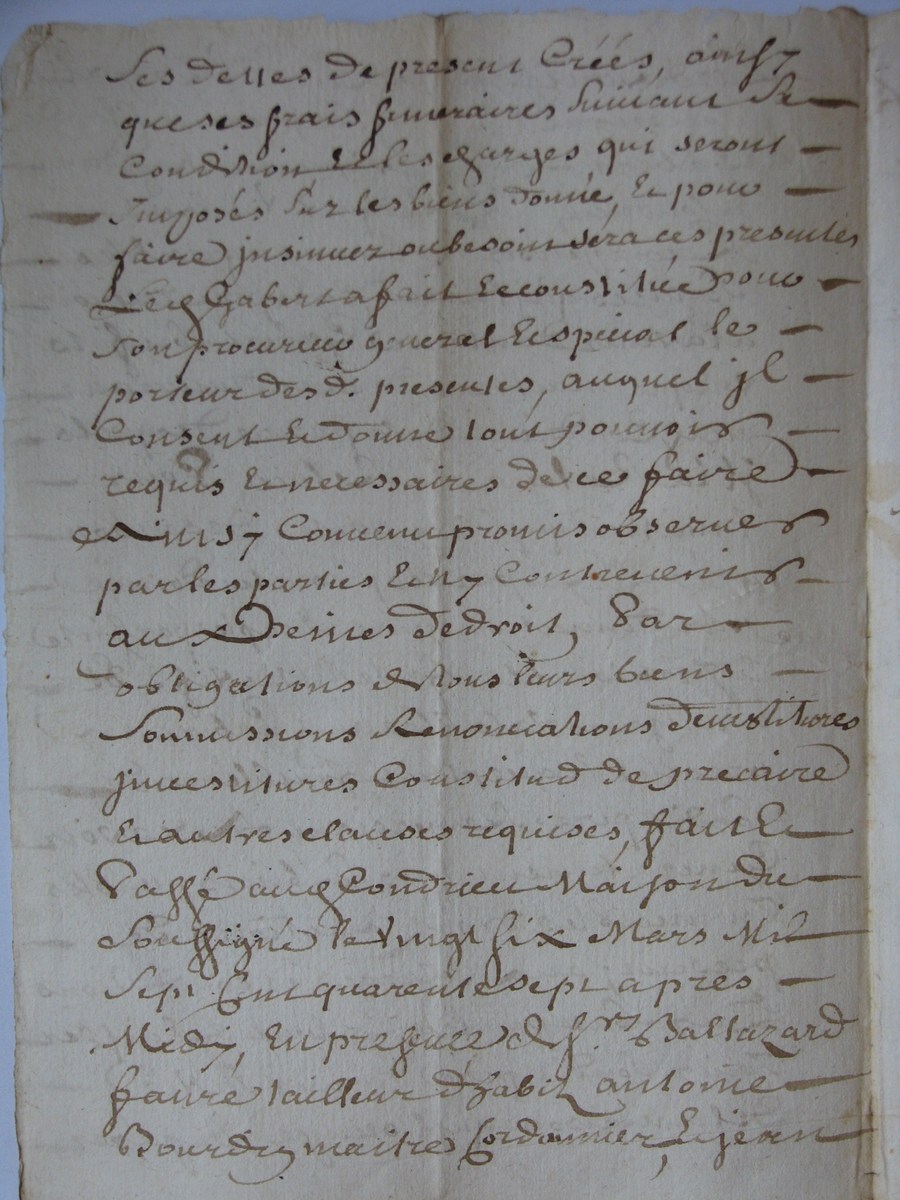 ses dettes de present Créés, ainsy
que ses frais funeraires suivant sa
Condition et les charges qui seront
Imposés sur les biens donné, Et pour
faire jnsinuer ou besoin sera ces presentes
Led Gabert a fait Et constitué pour
son procureur general Et special le
porteur des d. presentes, auquel jl
Consent Et donne tout pouvoir
requis Et necessaires de ce faire
Ainsy Convenu promis observer
par les parties Et ny Contrevenir
aux Peines de droit, Par
obligations de tous leurs biens
Soumissions Renonciations devestitures
jnvestitures Constitud de precaire
Et autres clauses requises, fait Et
Passé aud Condrieu Maison du
Soussigné le vingt six Mars Mil
Sept Cent quarente sept apres
Midy, En presence de Srs Baltazard
faure tailleur d'habit, antoine
Bourdy maitre Cordonnier, Et jean